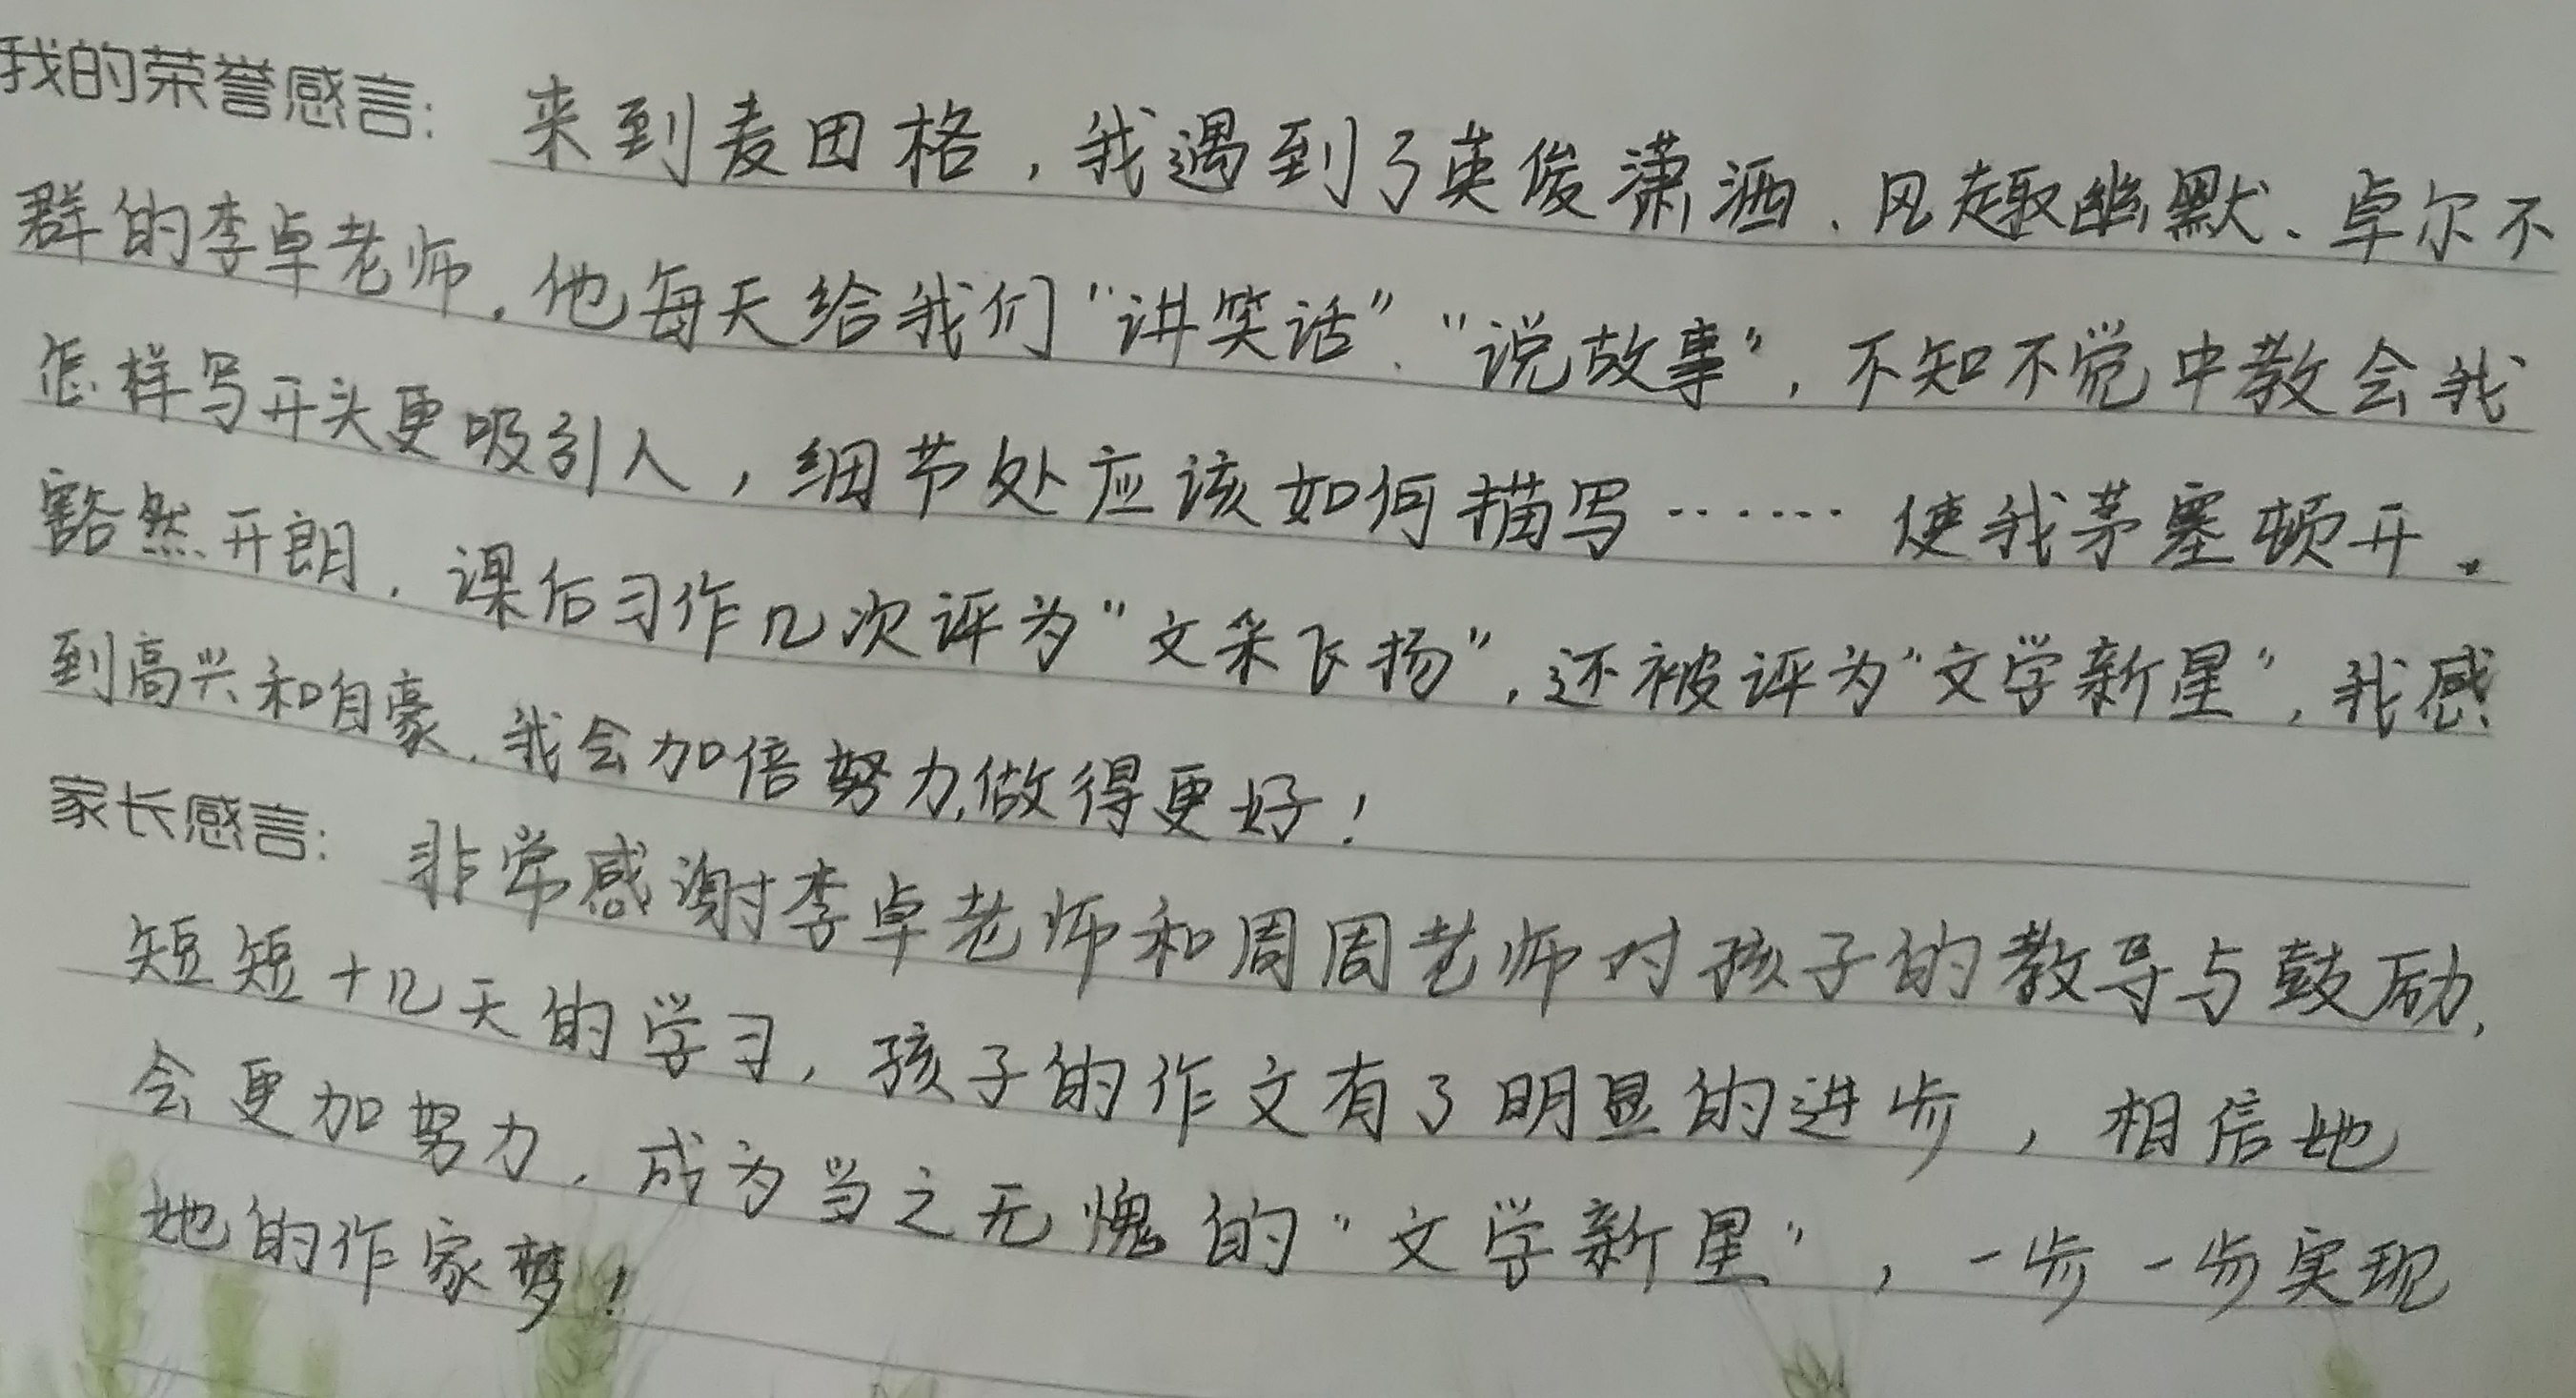 我的荣誉感言：来到麦田格，我遇到了英俊潇洒、风趣幽默、卓尔不
群的李卓老师，他每天给我们"讲笑话"、"说故事"，不知不觉中教会我
怎样写开头更吸引人，细节处应该如何描写……使我茅塞顿开。
豁然开朗，课后习作几次评为"文采飞扬"，还被评为"文学新星"，我感
到高兴和自豪，我会加倍努力，做得更好！
家长感言：非常感谢李卓老师和周周老师对孩子的教导与鼓励，
短短十几天的学习，孩子的作文有了明显的进步，相信她
会更加努力，成为当之无愧的"文学新星"，一步一步实现
她的作家梦！